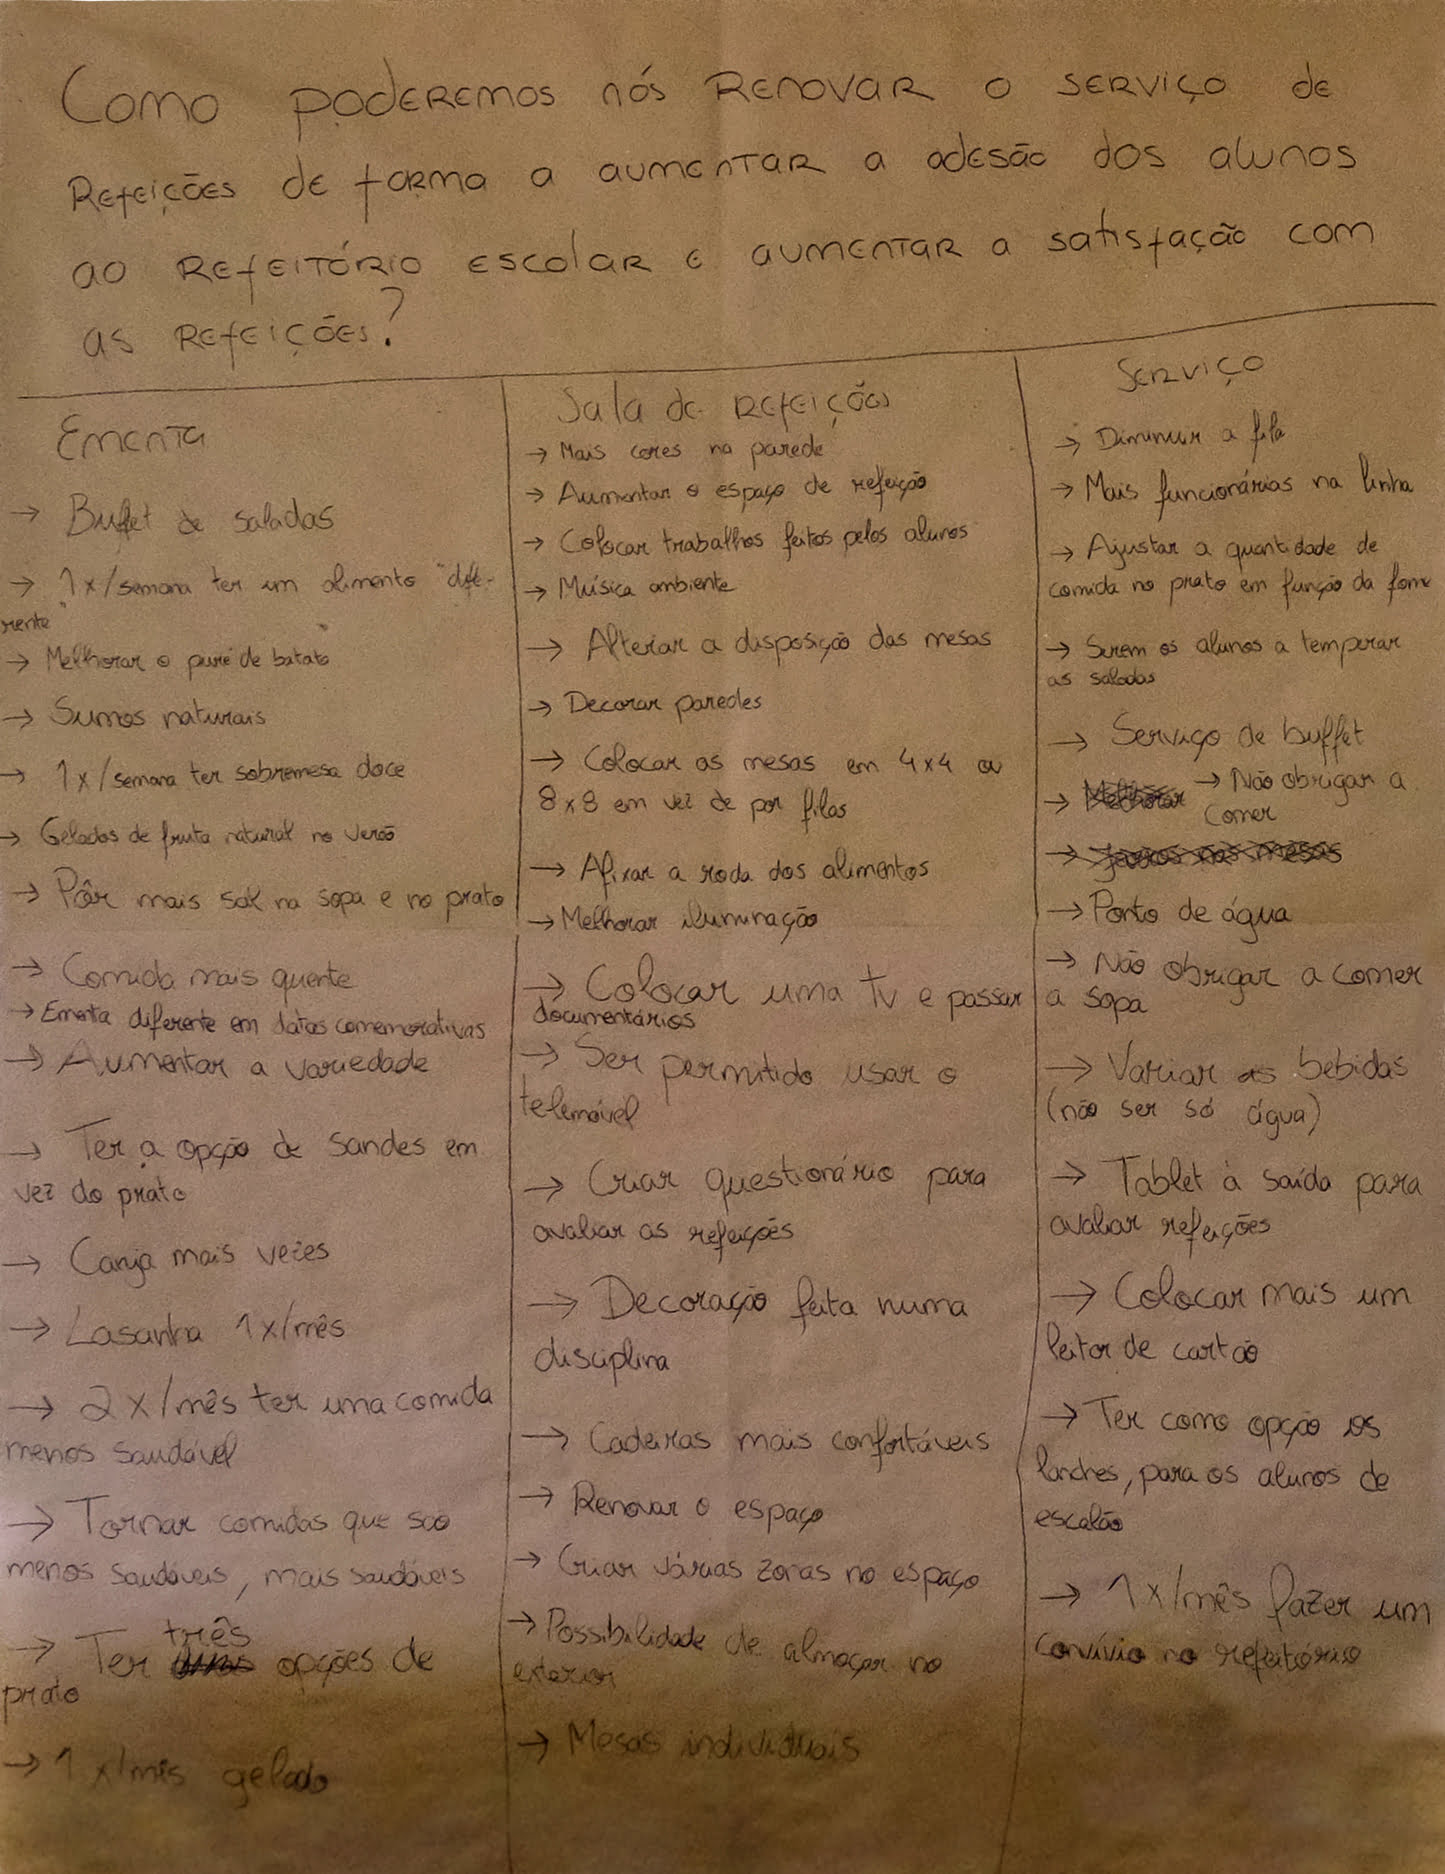 Como poderemos nós renovar o serviço de
refeições de forma a aumentar a adesão dos alunos
ao refeitório escolar e aumentar a satisfação com
as refeições?
Ementa
→ Buffet de saladas
→ 1x/semana ter um alimento "dife-
rente"
→ Melhorar o puré de batata
→ Sumos naturais
→ 1x/semana ter sobremesa doce
→ Gelados de fruta natural no verão
→ Pôr mais sal na sopa e no prato
→ Comida mais quente
→ Ementa diferente em datas comemorativas
→ Aumentar a variedade
→ Ter a opção de sandes em
vez do prato
→ Canja mais vezes
→ Lasanha 1x/mês
→ 2x/mês ter uma comida
menos saudável
→ Tornar comidas que são
menos saudáveis, mais saudáveis
→ Ter três opções de
prato
→ 1x/mês gelado
Sala de refeições
→ Mais cores na parede
→ Aumentar o espaço de refeição
→ Colocar trabalhos feitos pelos alunos
→ Música ambiente
→ Alterar a disposição das mesas
→ Decorar paredes
→ Colocar as mesas em 4x4 ou
8x8 em vez de por filas
→ Afixar a roda dos alimentos
→ Melhorar iluminação
→ Colocar uma tv e passar
documentários
→ Ser permitido usar o
telemóvel
→ Criar questionário para
avaliar as refeições
→ Decoração feita numa
disciplina
→ Cadeiras mais confortáveis
→ Renovar o espaço
→ Criar várias zonas no espaço
→ Possibilidade de almoçar no
exterior
→ Mesas individuais
Serviço
→ Diminuir a fila
→ Mais funcionárias na linha
→ Ajustar a quantidade de
comida no prato em função da fome
→ Serem os alunos a temperar
as saladas
→ Serviço de buffet
→ Melhorar → Não obrigar a
comer
→ Jarros nas mesas
→ Ponto de água
→ Não obrigar a comer
a sopa
→ Variar as bebidas
(não ser só água)
→ Tablet à saída para
avaliar refeições
→ Colocar mais um
leitor de cartão
→ Ter como opção os
lanches, para os alunos de
escalão
→ 1x/mês fazer um
convívio no refeitório